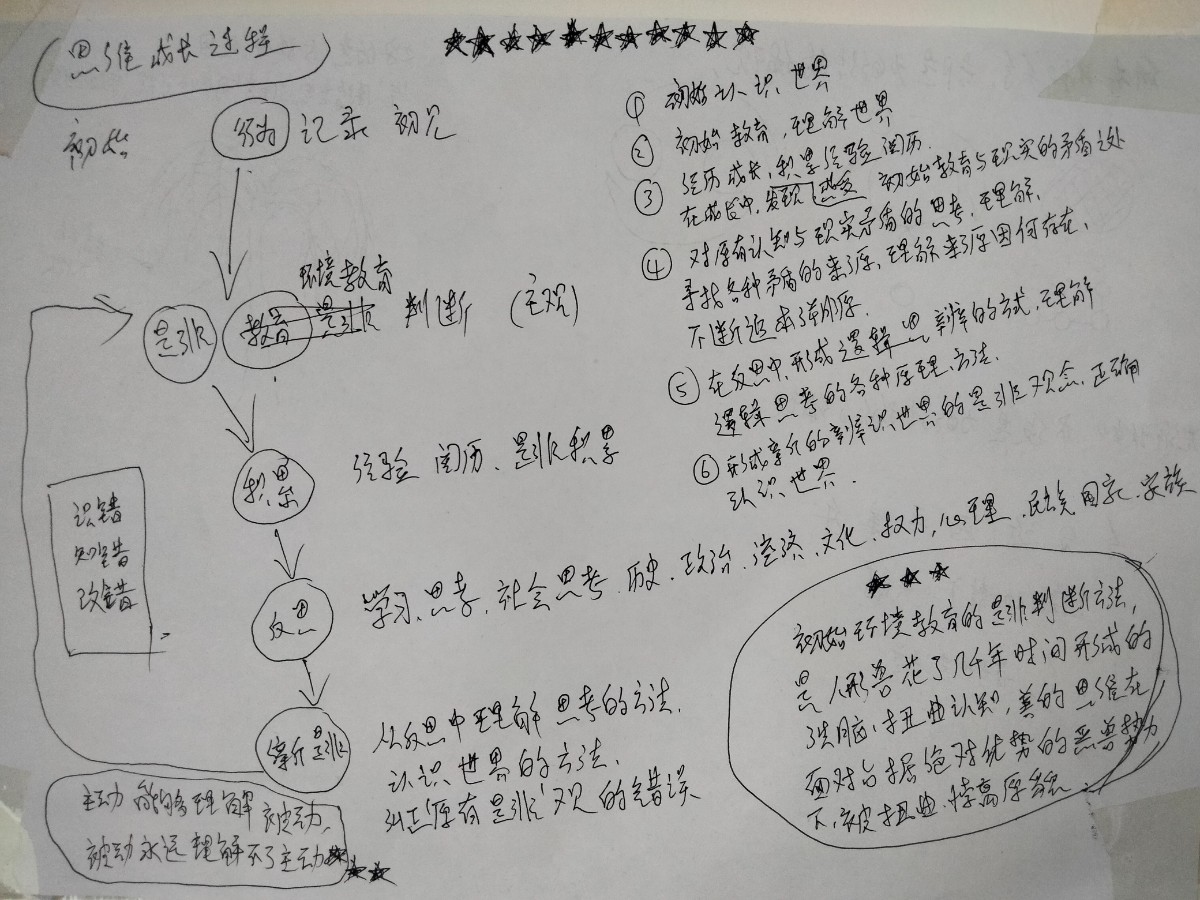 思维成长过程
★★★★★★★★★★★
初始
行为 记录 初见
环境教育
是非 教育 是非 判断 (主观)
积累 经验 阅历、是非积累
识错
知错
改错
反思 学习、思考、社会思考、历史、政治、经济、文化、权力,心理、民族、国家、家族
是非 从反思中理解思考的方法、
认识世界的方法、
纠正原有是非观的错误
主动能够理解被动,
被动永远理解不了主动★★★
① 初始认识世界
② 初始教育,理解世界
③ 经历成长,积累经验阅历.
在成长中,发现 感受 初始教育与现实的矛盾之处
④ 对原有认知与现实矛盾的思考、理解、
寻找各种矛盾的来源、理解来源因何存在、
不断追本溯源.
⑤ 在反思中,形成逻辑思辨的方式,理解
逻辑思考的各种原理、方法.
⑥ 形成的世界的是非观念,正确
认识世界.
★★★
初始环境教育的是非判断方法,
是人形兽花了几千年时间形成的
洗脑,扭曲认知,善的思维在
面对占据绝对优势的恶兽势力
下,被扭曲,